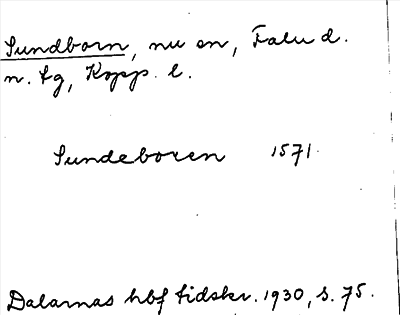 Sundborn, nu en, Falu d.
n. tg, Kopp. l.
Sundeboren 1571.
Dalarnas hbf tidskr. 1930, s. 75.